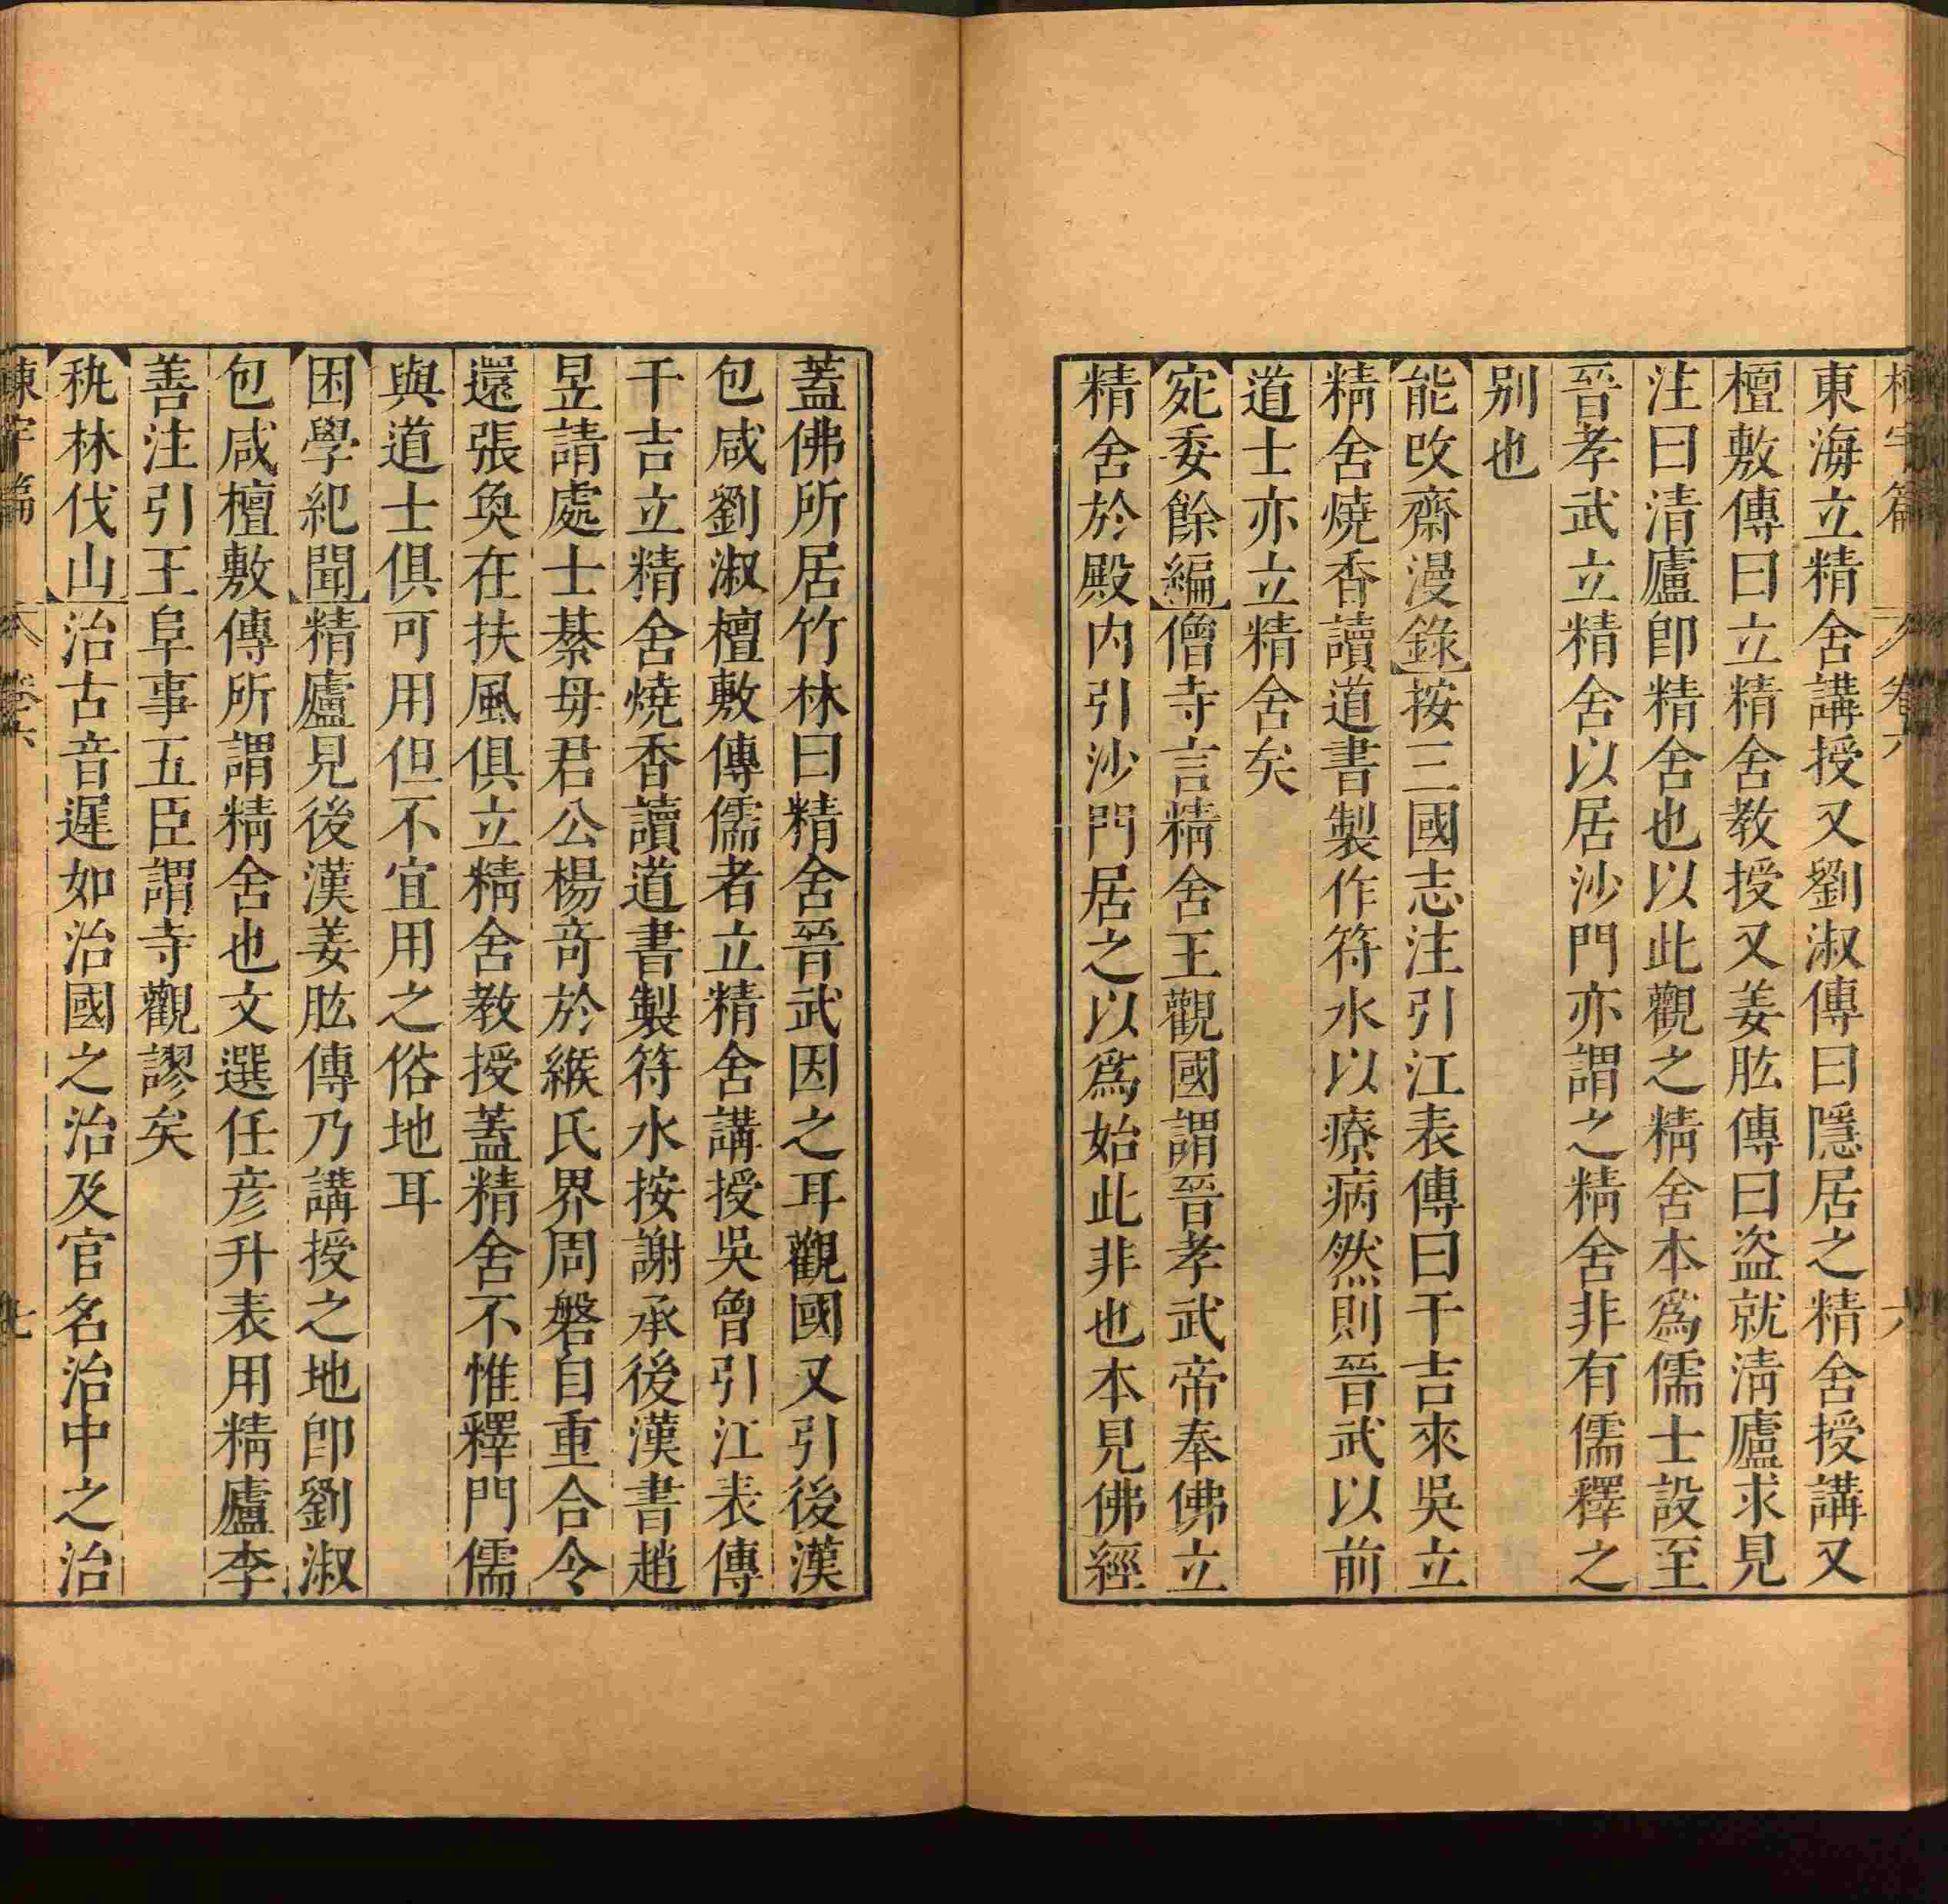 東海立精舍講授又劉淑傳曰隱居之精舍授講又
檀敷傳曰立精舍教授又姜肱傳曰盜就淸廬求見
注曰清廬卽精舍也以此觀之精舍本爲儒士設至
晉孝武立精舍以居沙門亦謂之精舍非有儒釋之
别也
能改齋漫錄按三國志注引江表傳曰干吉來吳立
精舍燒香讀道書製作符水以療病然則晉武以前
道士亦立精舍矣
宛委餘編僧寺言精舍王觀國謂晉孝武帝奉佛立
精舍於殿内引沙門居之以爲始此非也本見佛經
蓋佛所居竹林曰精舍晉武因之耳觀國又引後漢
包咸劉淑檀敷傳儒者立精舍講授吳曾引江表傳
干吉立精舍燒香讀道書製符水按謝承後漢書趙
昱請處士綦毋君公楊竒於緱氏界周磐自重合令
還張奐在扶風俱立精舍教授蓋精舍不惟釋門儒
與道士俱可用但不宜用之俗地耳
困學紀聞精廬見後漢姜肱傳乃講授之地卽劉淑
包咸檀敷傳所謂精舍也文選任彦升表用精廬李
善注引王阜事五臣謂寺觀謬矣
秇林伐山治古音遲如治國之治及官名治中之治
卷六
七